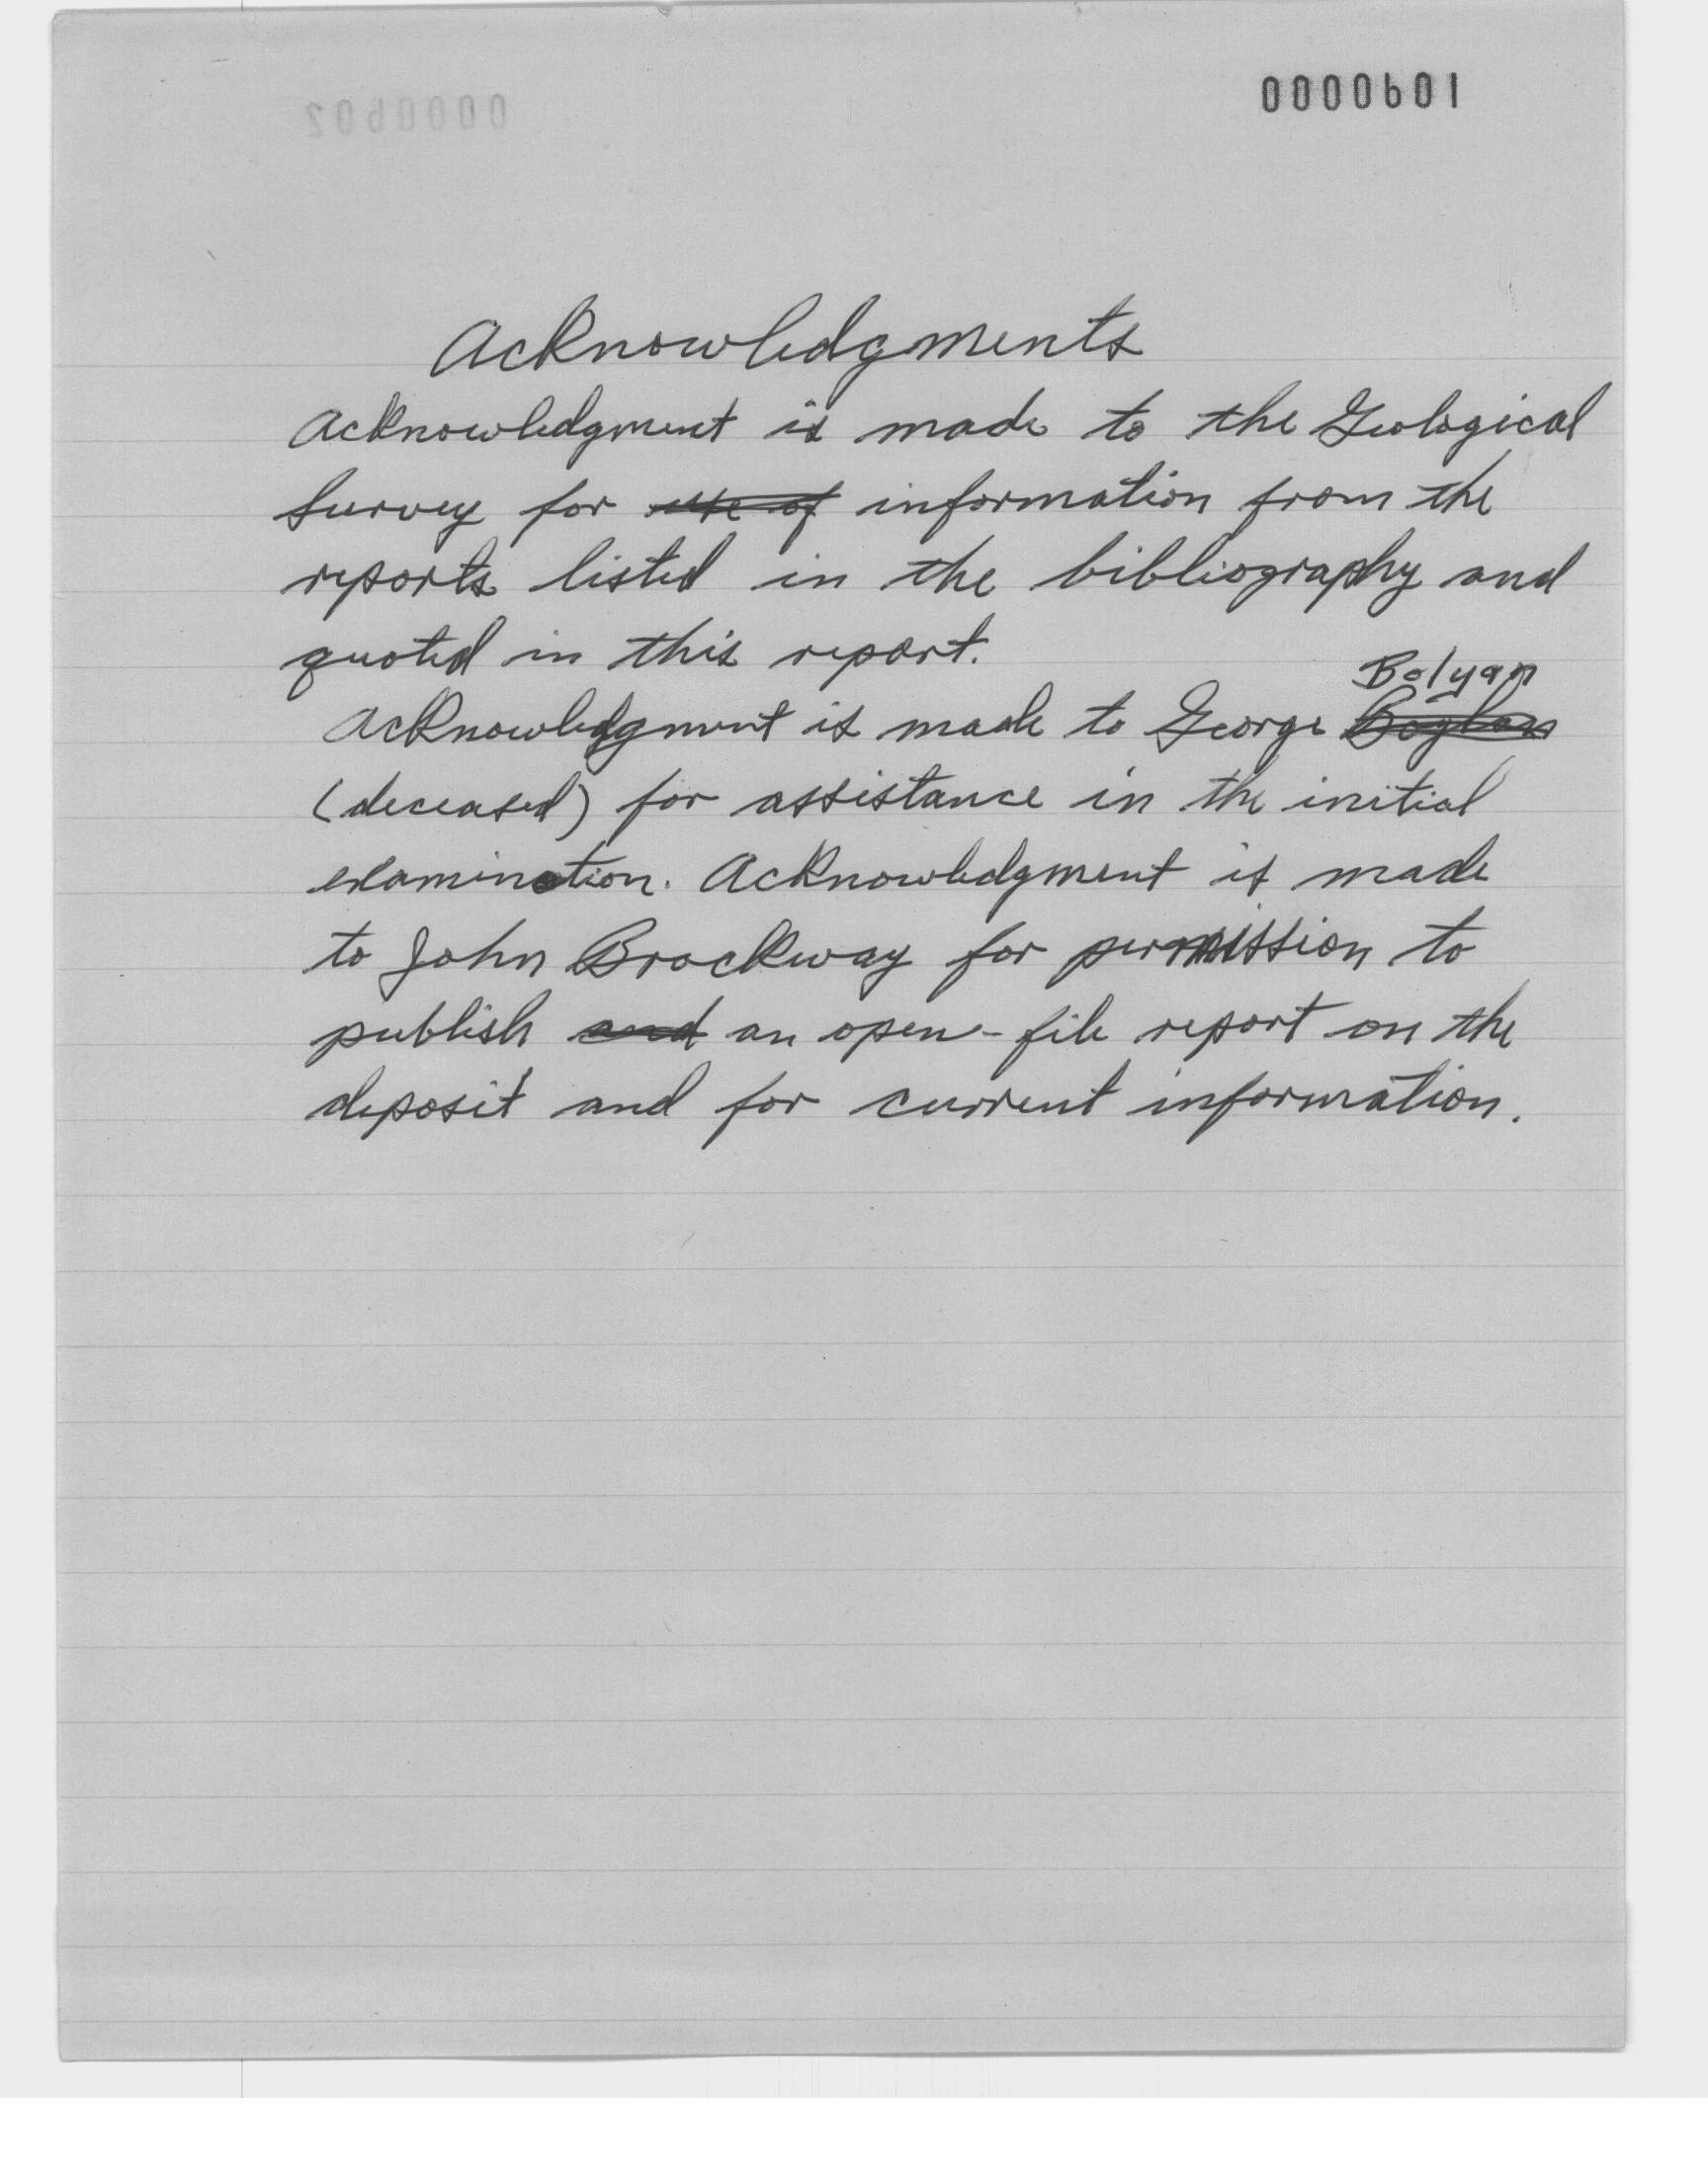 0000601
Acknowledgments
Acknowledgment is made to the Geological
Survey for use of information from the
reports listed in the bibliography and
quoted in this report.
Bolyan
Acknowledgment is made to George
(deceased) for assistance in the initial
examination. Acknowledgment is made
to John Brockway for permission to
publish and an open-file report on the
deposit and for current information.